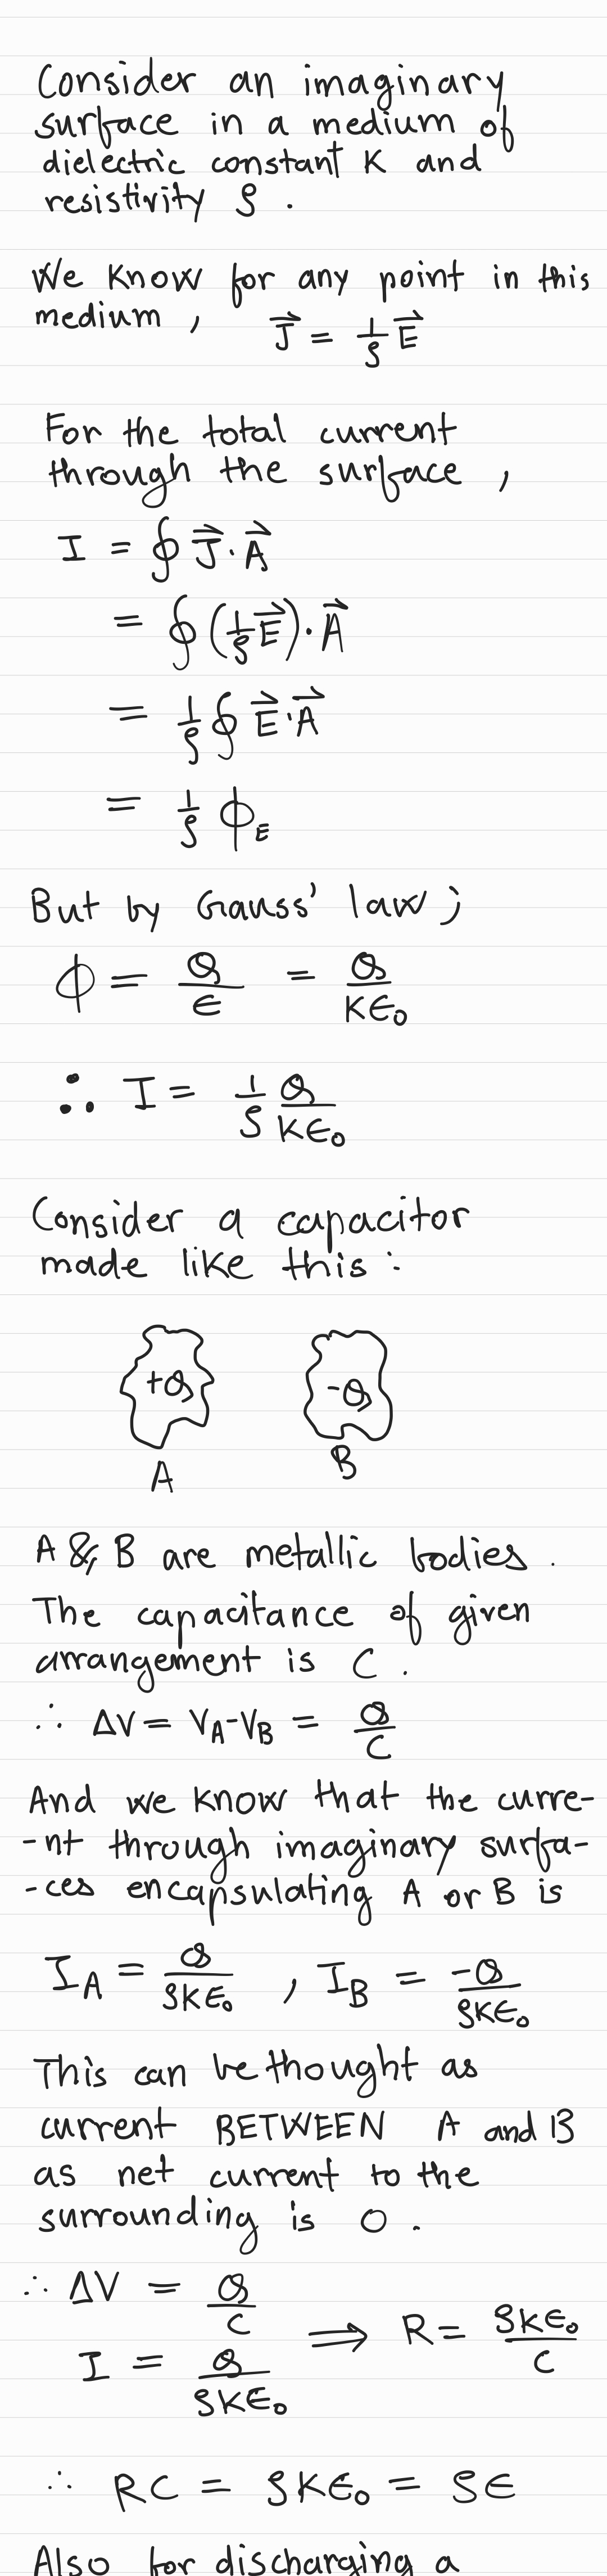 Consider an imaginary
surface in a medium of
dielectric constant K and
resistivity ρ .
We know for any point in this
medium , J⃗ = 1/ρ E⃗
For the total current
through the surface ,
I = ∮ J⃗ · A⃗
= ∮ (1/ρ E⃗) · A⃗
= 1/ρ ∮ E⃗ · A⃗
= 1/ρ ϕ_E
But by Gauss' law ;
ϕ = Q/ϵ = Q/Kϵ₀
∴ I = 1/ρ Q/Kϵ₀
Consider a capacitor
made like this :
+Q -Q
A B
A & B are metallic bodies .
The capacitance of given
arrangement is C .
∴ ΔV = V_A - V_B = Q/C
And we know that the curre-
-nt through imaginary surfa-
-ces encapsulating A or B is
I_A = Q/ρKϵ₀ , I_B = -Q/ρKϵ₀
This can be thought as
current BETWEEN A and B
as net current to the
surrounding is 0 .
∴ ΔV = Q/C
I = Q/ρKϵ₀ ⟹ R = ρKϵ₀/C
∴ RC = ρKϵ₀ = ρϵ
Also for discharging a